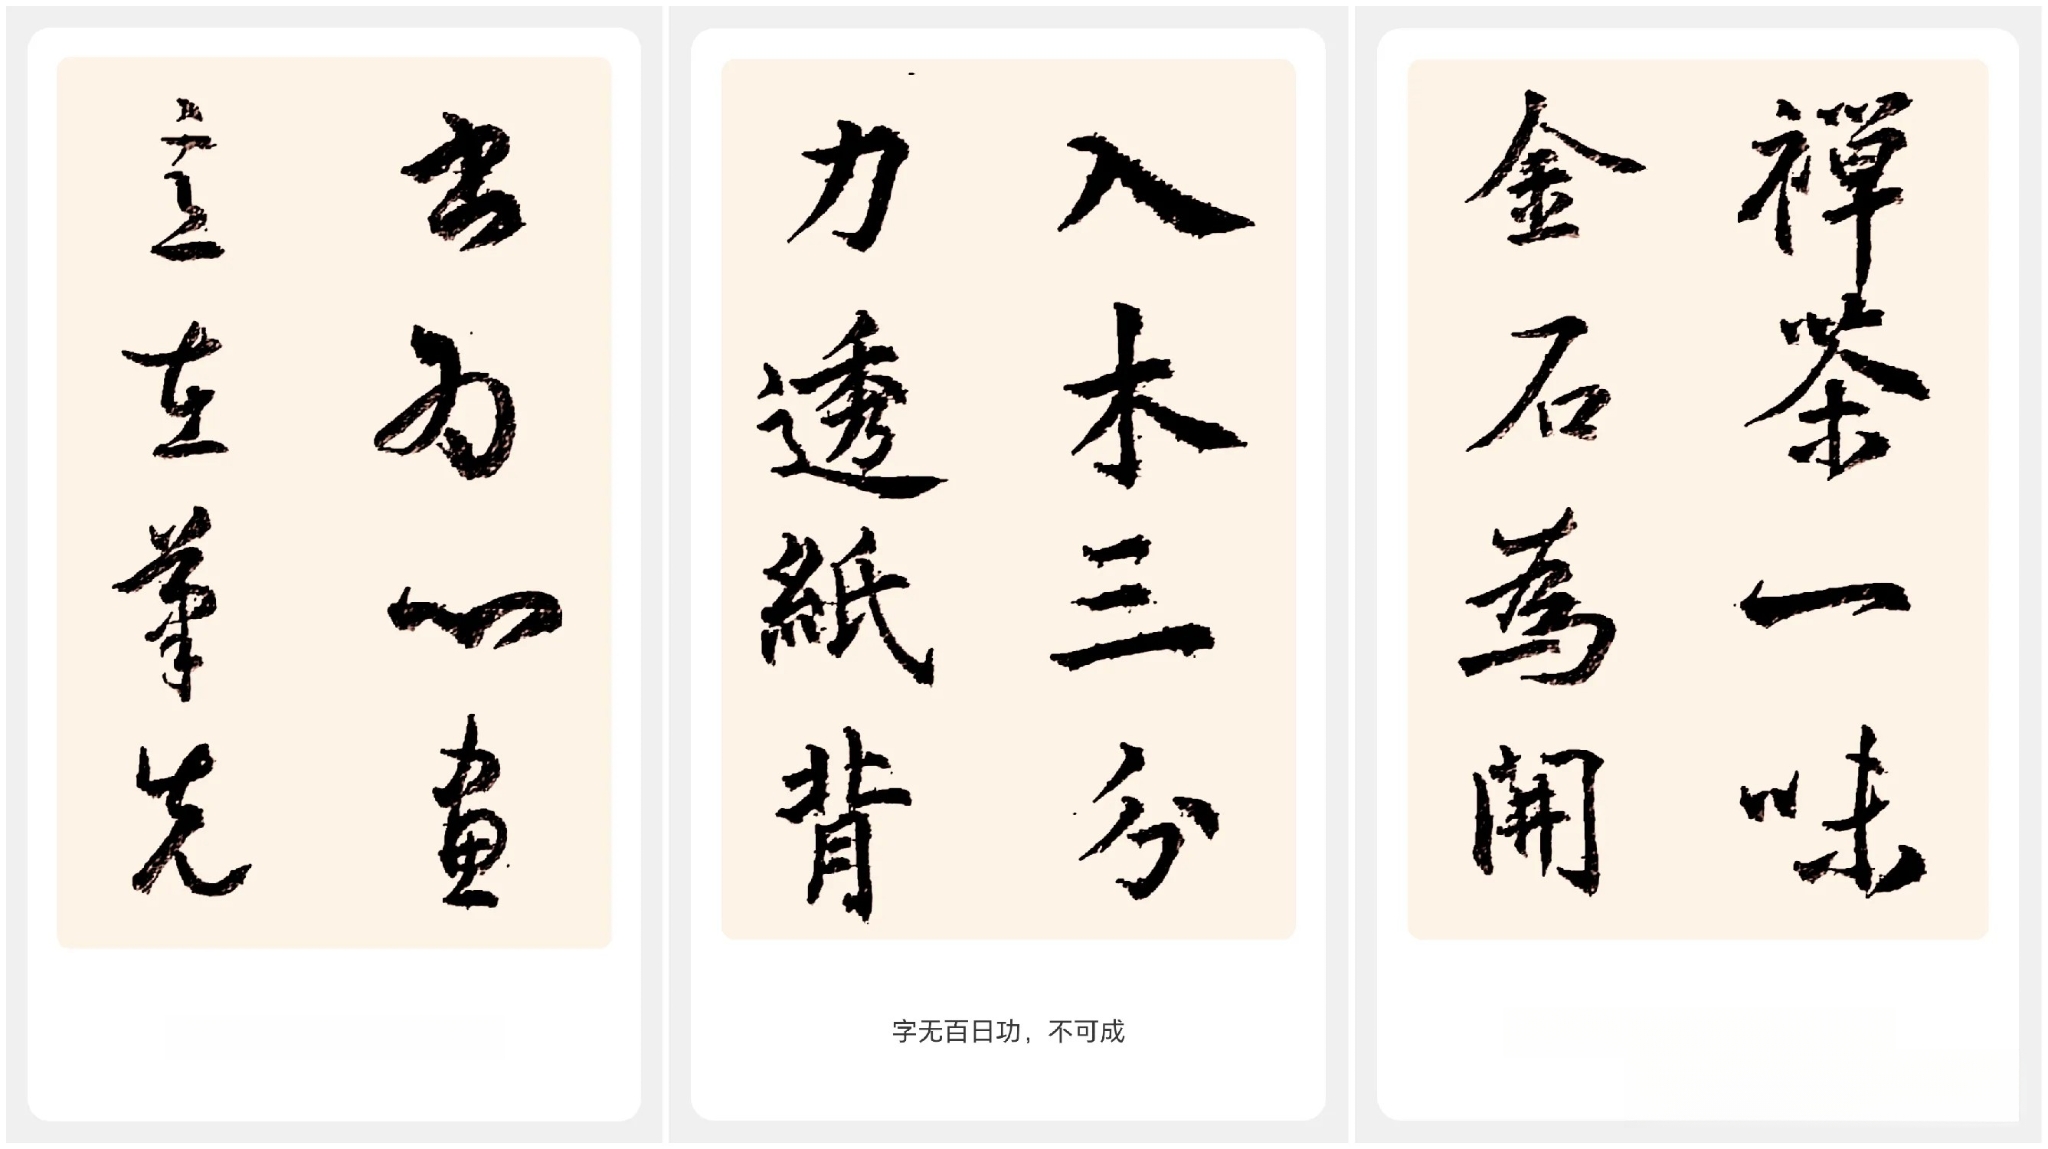 书为心畫
意在筆先
入木三分
力透紙背
字无百日功，不可成
禪茶一味
金石為開